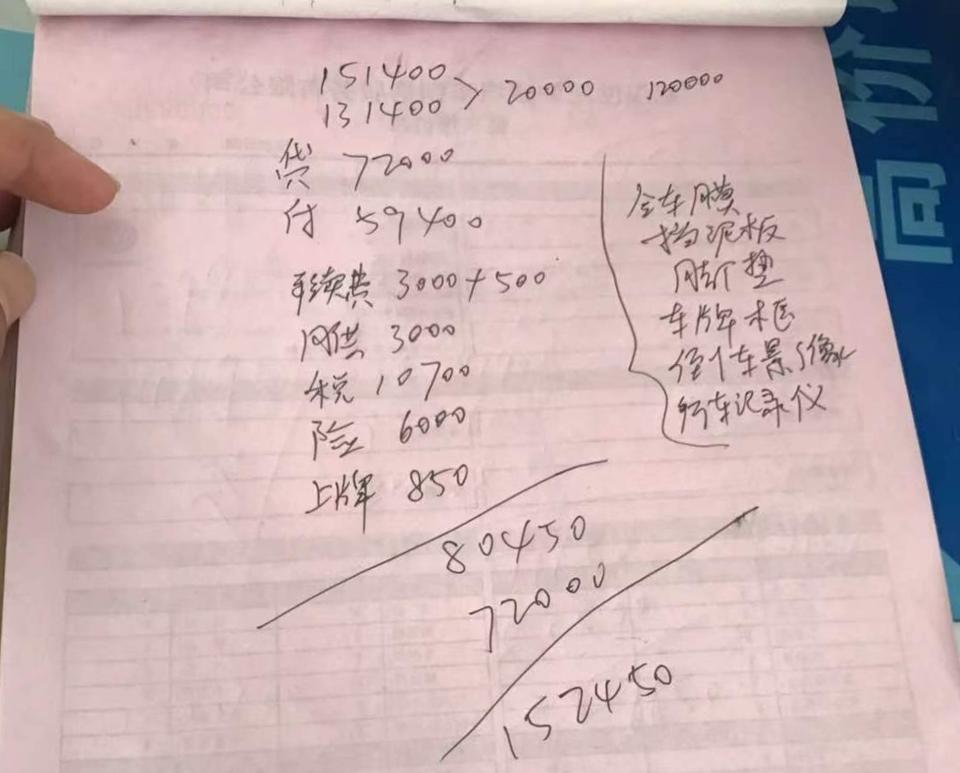 151400
131400 > 20000 120000
贷 72000
付 59400
手续费 3000+500
网供 3000
税 10700
险 6000
上牌 850
全车膜
挡泥板
脚垫
车牌框
倒车影像
行车记录仪
80450
72000
152450
价
同